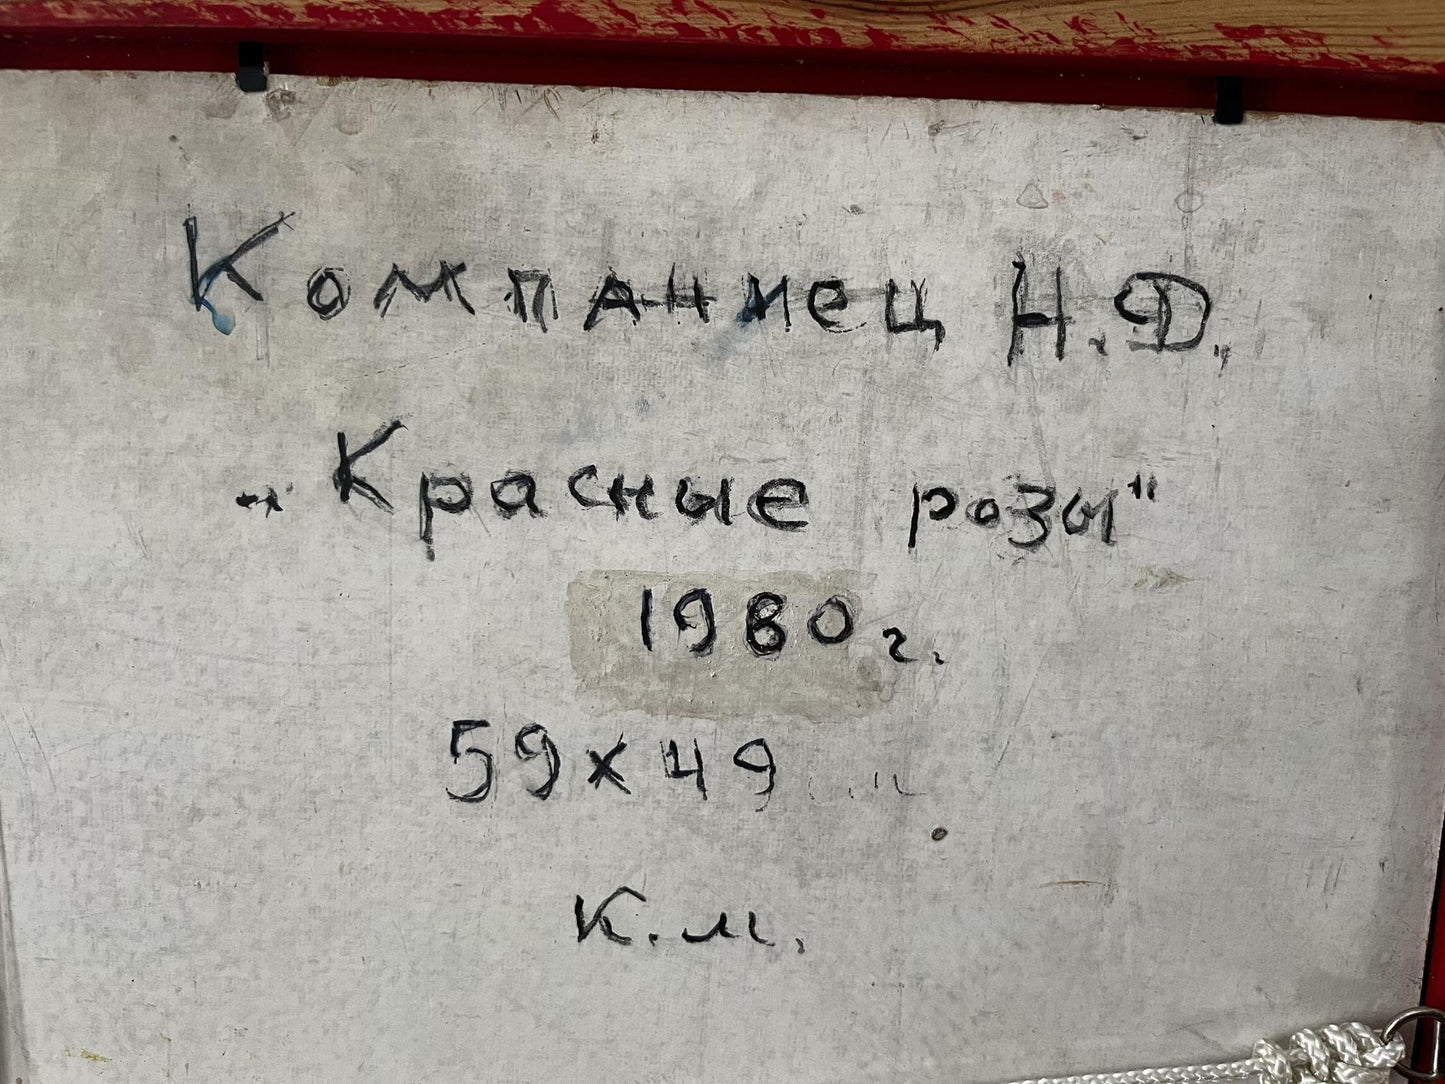 Компаниец Н.Д.,
„Красные розы"
1980 г.
59х49
к.м.